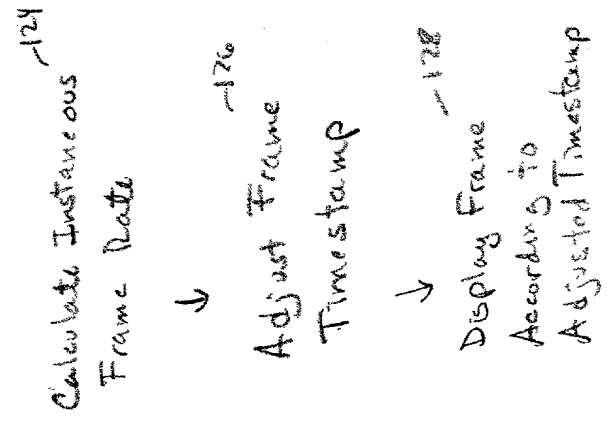 Calculate Instaneous -124
Frame Rate
↓
Adjust Frame -126
Timestamp
↓
Display Frame -128
According to
Adjusted Timestamp